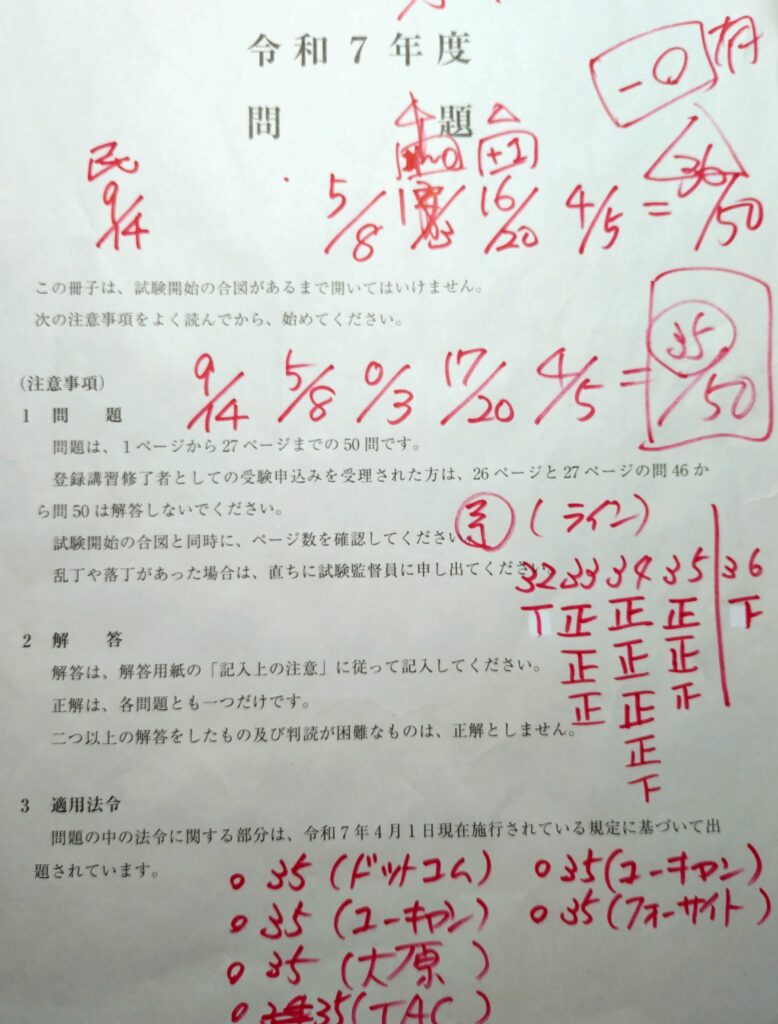 令和7年度
-0
問題
+1
9/14 5/8 16/20 4/5 = 36/50
この冊子は、試験開始の合図があるまで開いてはいけません。
次の注意事項をよく読んでから、始めてください。
9/14 5/8 0/3 17/20 4/5 = 35/50
(注意事項)
1 問題
問題は、1ページから27ページまでの50問です。
登録講習修了者としての受験申込みを受理された方は、26ページと27ページの問46か
ら問50は解答しないでください。
試験開始の合図と同時に、ページ数を確認してください
(ライン)
乱丁や落丁があった場合は、直ちに試験監督員に申し出てください
32 33 34 35 36
丅 正 正 正 下
正 正 正
正 正 正
正
下
2 解答
解答は、解答用紙の「記入上の注意」に従って記入してください。
正解は、各問題とも一つだけです。
二つ以上の解答をしたもの及び判読が困難なものは、正解としません。
3 適用法令
問題の中の法令に関する部分は、令和7年4月1日現在施行されている規定に基づいて出
題されています。
o 35 (ドットコム) o 35 (ユーキャン)
o 35 (ユーキャン) o 35 (フォーサイト)
o 35 (大原)
o 35 (TAC)